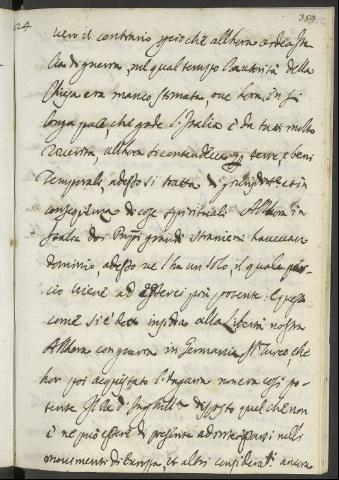 359
24
vero il contrario perche allhora ardea Ita-
lia di guerra, nel qual tempo l'autorità della
Chiesa era manco stimata, ove hora, è in si
longa pace, che gode l'Italia è da tutti molto
riverita, allhora si contendeva per terre, e beni
Temporali, adesso si tratta di giurisdittione et in
consequenza di cose spirituali. Allhora in
Italia doi Prencipi grandi stranieri havevan
dominio adesso ve l'ha un solo, il quale
viene ad esserci più potente. e questo
come si è detto insidia alla libertà nostra
Allhora congiurava in Germania il Turco, che
hor poi acquistato l'Ungaria non era così po-
tente. Il Re d'Inghilterra disposto quel che non
è ne può essere di presente ad interporsi nelli
movimenti di Europa, et altri considerat. ancora